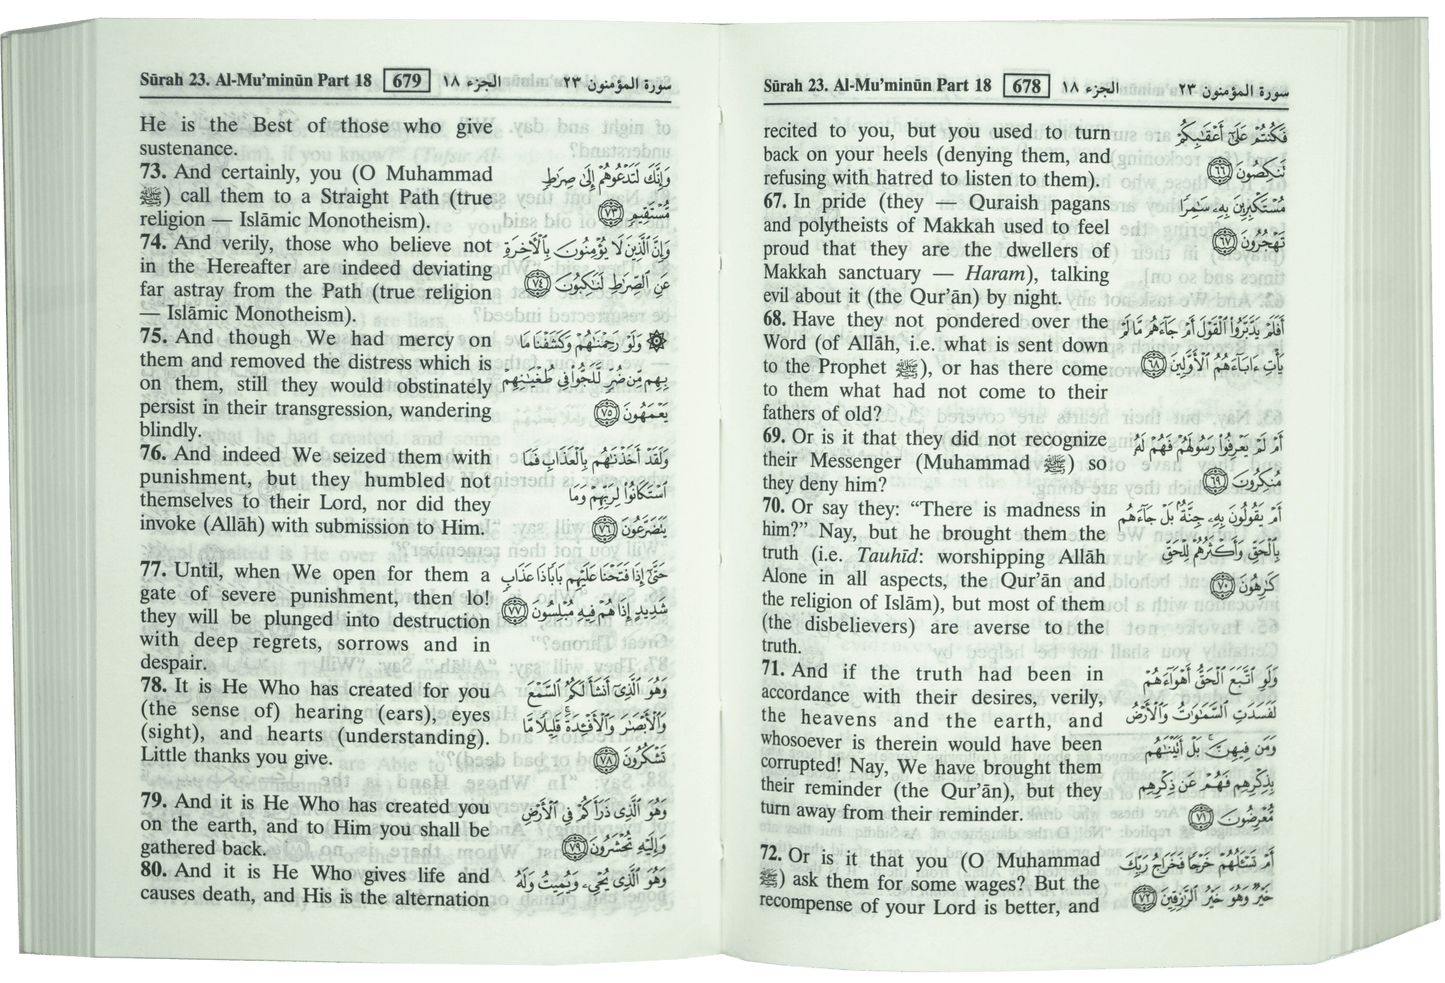 Sūrah 23. Al-Mu’minūn Part 18 678 الجزء ١٨ سورة المؤمنون ٢٣
recited to you, but you used to turn
back on your heels (denying them, and
refusing with hatred to listen to them).
67. In pride (they — Quraish pagans
and polytheists of Makkah used to feel
proud that they are the dwellers of
Makkah sanctuary — Haram), talking
evil about it (the Qur’ān) by night.
68. Have they not pondered over the
Word (of Allāh, i.e. what is sent down
to the Prophet ﷺ), or has there come
to them what had not come to their
fathers of old?
69. Or is it that they did not recognize
their Messenger (Muhammad ﷺ) so
they deny him?
70. Or say they: “There is madness in
him?” Nay, but he brought them the
truth (i.e. Tauhīd: worshipping Allāh
Alone in all aspects, the Qur’ān and
the religion of Islām), but most of them
(the disbelievers) are averse to the
truth.
71. And if the truth had been in
accordance with their desires, verily,
the heavens and the earth, and
whosoever is therein would have been
corrupted! Nay, We have brought them
their reminder (the Qur’ān), but they
turn away from their reminder.
72. Or is it that you (O Muhammad
ﷺ) ask them for some wages? But the
recompense of your Lord is better, and
فَكُنتُمْ عَلَىٰٓ أَعْقَٰبِكُمْ
تَنكِصُونَ ٦٦
مُسْتَكْبِرِينَ بِهِۦ سَٰمِرًا
تَهْجُرُونَ ٦٧
أَفَلَمْ يَدَّبَّرُوا۟ ٱلْقَوْلَ أَمْ جَآءَهُم مَّا لَمْ
يَأْتِ ءَابَآءَهُمُ ٱلْأَوَّلِينَ ٦٨
أَمْ لَمْ يَعْرِفُوا۟ رَسُولَهُمْ فَهُمْ لَهُۥ
مُنكِرُونَ ٦٩
أَمْ يَقُولُونَ بِهِۦ جِنَّةٌۢ بَلْ جَآءَهُم
بِٱلْحَقِّ وَأَكْثَرُهُمْ لِلْحَقِّ
كَٰرِهُونَ ٧٠
وَلَوِ ٱتَّبَعَ ٱلْحَقُّ أَهْوَآءَهُمْ
لَفَسَدَتِ ٱلسَّمَٰوَٰتُ وَٱلْأَرْضُ
وَمَن فِيهِنَّ بَلْ أَتَيْنَٰهُم
بِذِكْرِهِمْ فَهُمْ عَن ذِكْرِهِم
مُّعْرِضُونَ ٧١
أَمْ تَسْـَٔلُهُمْ خَرْجًا فَخَرَاجُ رَبِّكَ
خَيْرٌ وَهُوَ خَيْرُ ٱلرَّٰزِقِينَ ٧٢
Sūrah 23. Al-Mu’minūn Part 18 679 الجزء ١٨ سورة المؤمنون ٢٣
He is the Best of those who give
sustenance.
73. And certainly, you (O Muhammad
ﷺ) call them to a Straight Path (true
religion — Islāmic Monotheism).
74. And verily, those who believe not
in the Hereafter are indeed deviating
far astray from the Path (true religion
— Islāmic Monotheism).
75. And though We had mercy on
them and removed the distress which is
on them, still they would obstinately
persist in their transgression, wandering
blindly.
76. And indeed We seized them with
punishment, but they humbled not
themselves to their Lord, nor did they
invoke (Allāh) with submission to Him.
77. Until, when We open for them a
gate of severe punishment, then lo!
they will be plunged into destruction
with deep regrets, sorrows and in
despair.
78. It is He Who has created for you
(the sense of) hearing (ears), eyes
(sight), and hearts (understanding).
Little thanks you give.
79. And it is He Who has created you
on the earth, and to Him you shall be
gathered back.
80. And it is He Who gives life and
causes death, and His is the alternation
وَإِنَّكَ لَتَدْعُوهُمْ إِلَىٰ صِرَٰطٍ
مُّسْتَقِيمٍ ٧٣
وَإِنَّ ٱلَّذِينَ لَا يُؤْمِنُونَ بِٱلْأَخِرَةِ
عَنِ ٱلصِّرَٰطِ لَنَٰكِبُونَ ٧٤
۞ وَلَوْ رَحِمْنَٰهُمْ وَكَشَفْنَا مَا
بِهِم مِّن ضُرٍّ لَّلَجُّوا۟ فِى طُغْيَٰنِهِمْ
يَعْمَهُونَ ٧٥
وَلَقَدْ أَخَذْنَٰهُم بِٱلْعَذَابِ فَمَا
ٱسْتَكَانُوا۟ لِرَبِّهِمْ وَمَا
يَتَضَرَّعُونَ ٧٦
حَتَّىٰٓ إِذَا فَتَحْنَا عَلَيْهِم بَابًا ذَا عَذَابٍ
شَدِيدٍ إِذَا هُمْ فِيهِ مُبْلِسُونَ ٧٧
وَهُوَ ٱلَّذِىٓ أَنشَأَ لَكُمُ ٱلسَّمْعَ
وَٱلْأَبْصَٰرَ وَٱلْأَفْـِٔدَةَ قَلِيلًا مَّا
تَشْكُرُونَ ٧٨
وَهُوَ ٱلَّذِى ذَرَأَكُمْ فِى ٱلْأَرْضِ
وَإِلَيْهِ تُحْشَرُونَ ٧٩
وَهُوَ ٱلَّذِى يُحْىِۦ وَيُمِيتُ وَلَهُ